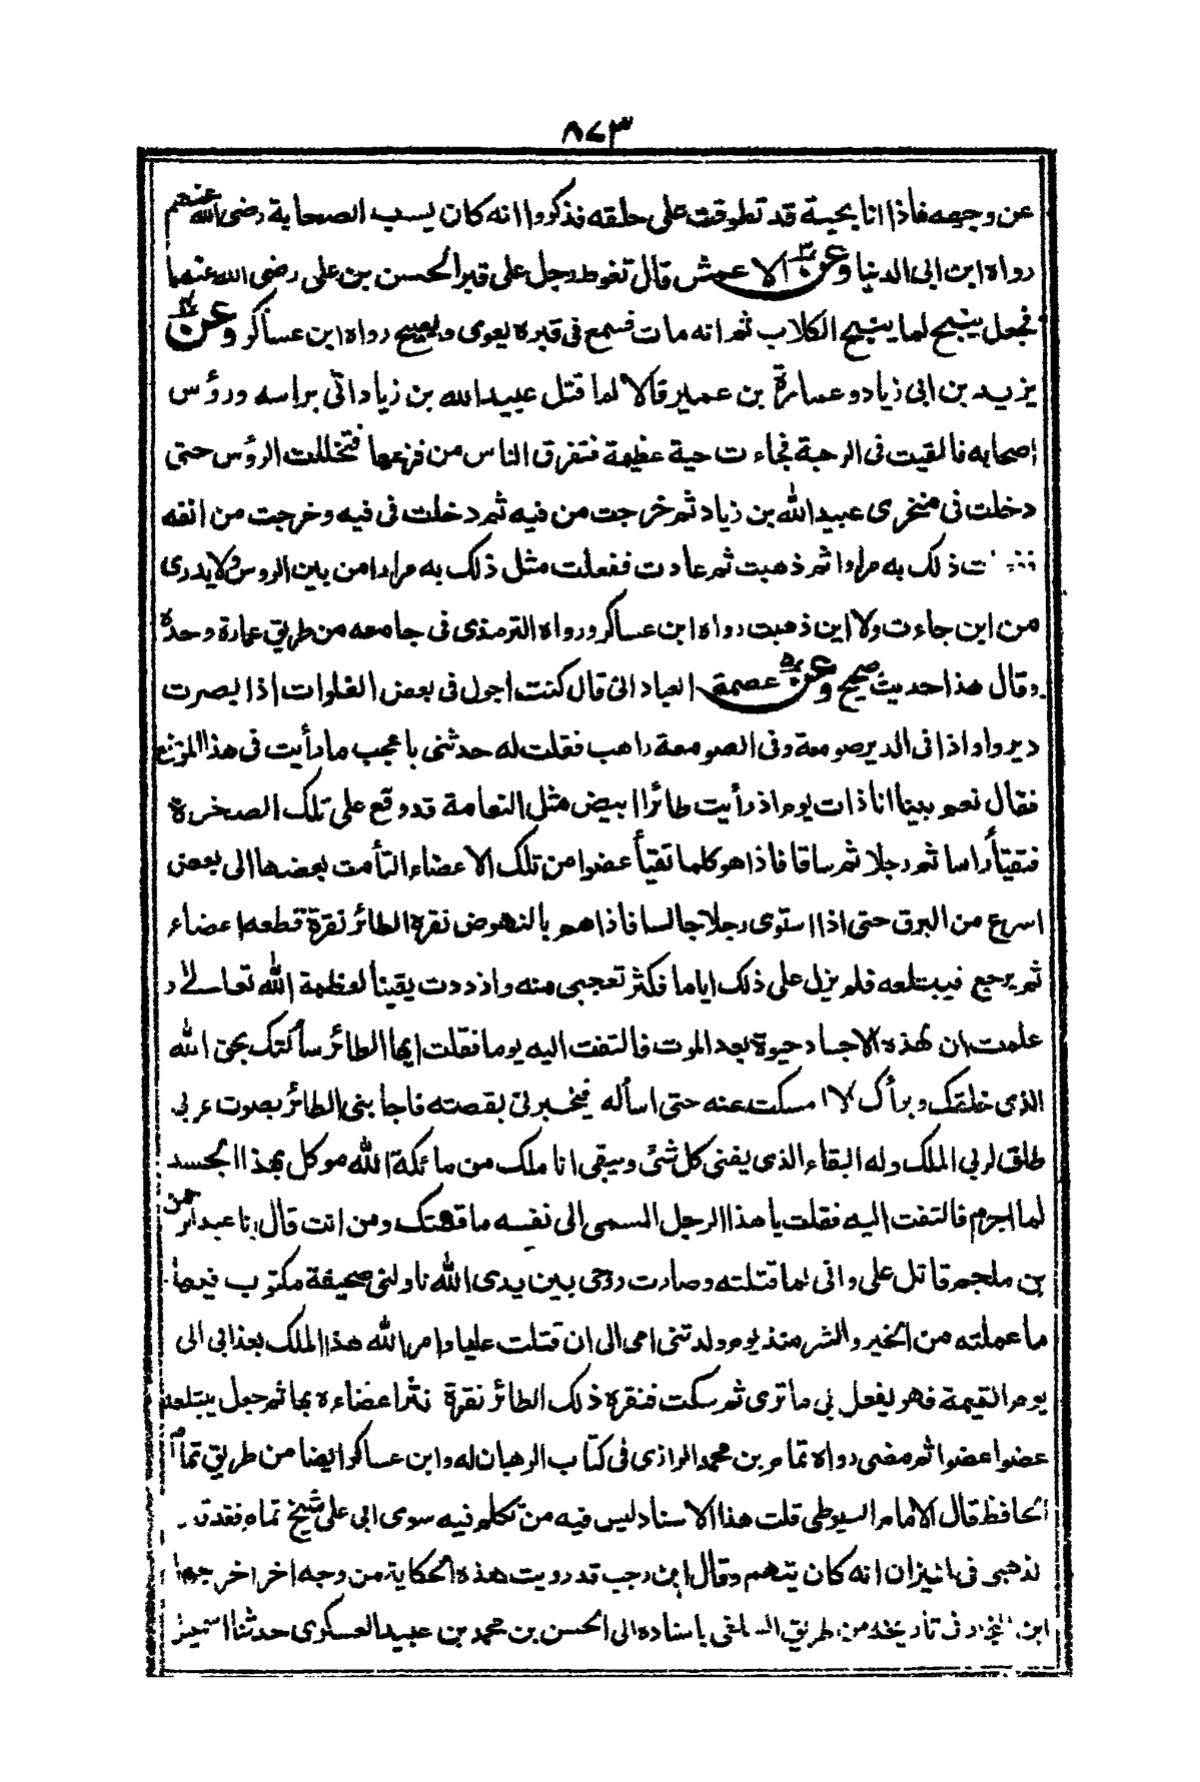 ٨٧٣
عن وجهه فاذا انا بحية قد تطوقت على حلقه فذكروا انه كان يسب الصحابة رضى الله عنهم
رواه ابن ابى الدنيا وعن الاعمش قال تغوط رجل على قبر الحسن بن على رضى الله عنهما
فجعل ينبح لما ينبح الكلاب ثم انه مات فسمع فى قبره يعوى ويصيح رواه ابن عساكر وعن
يزيد بن ابى زياد وعمارة بن عمير قالا لما قتل عبيد الله بن زياد اتى براسه ورؤس
اصحابه فالقيت فى الرحبة فجاءت حية عظيمة فتفرق الناس من فزعها فتخللت الرؤس حتى
دخلت فى منخرى عبيد الله بن زياد ثم خرجت من فيه ثم دخلت فى فيه وخرجت من انفه
ذلك به مرارا ثم ذهبت ثم عادت ففعلت مثل ذلك به مرارا من بين الروس ولا يدرى
من اين جاءت ولا اين ذهبت رواه ابن عساكر ورواه الترمذى فى جامعه من طريق عمارة وحده
وقال هذا حديث صحيح وعن عصمة العبادانى قال كنت اجول فى بعض الفلوات اذا بصرت
ديرا واذا فى الدير صومعة وفى الصومعة راهب فقلت له حدثنى باعجب ما رأيت فى هذا الموضع
فقال نعم بينا انا ذات يوم اذ رأيت طائرا ابيض مثل النعامة قد وقع على تلك الصخرة
فتقيأ راسا ثم رجلا ثم ساقا فاذا هو كلما تقيأ عضوا من تلك الاعضاء التأمت بعضها الى بعض
اسرع من البرق حتى اذا استوى رجلا جالسا فاذا هم بالنهوض نقره الطائر نقرة قطعه اعضاء
ثم يرجع فيبتلعه فلم يزل على ذلك اياما فكثر تعجبى منه وازددت يقينا لعظمة الله تعالى و
علمت ان لهذه الاجساد حيوة بعد الموت فالتفت اليه يوما فقلت ايها الطائر سألتك بحق الله
الذى خلقك وبرأك الا امسكت عنه حتى اسأله فيخبرنى بقصته فاجابنى الطائر بصوت عربى
طلق لربى الملك وله البقاء الذى يفنى كل شئ ويبقى انا ملك من مائكة الله موكل بهذا الجسد
لما اجرم فالتفت اليه فقلت يا هذا الرجل المسمى الى نفسه ما قصتك ومن انت قال انا عبد الرحمن
بن ملجم قاتل على وانى لما قتلته وصارت روحى بين يدى الله ناولنى صحيفة مكتوب فيها
ما عملته من الخير والشر منذ يوم ولدتنى امى الى ان قتلت عليا وامر الله هذا الملك بعذابى الى
يوم القيمة فهو يفعل بى ما ترى ثم سكت فنقره ذلك الطائر نقرة نثر اعضاءه بها ثم جعل يبتلعه
عضوا عضوا ثم مضى رواه تمام بن محمد الرازى فى كتاب الرهبان له وابن عساكر ايضا من طريق تمام
الحافظ قال الامام السيوطى قلت هذا الاسناد ليس فيه من تكلم فيه سوى ابى على شيخ تمام فقد قـ
لذهبى فى الميزان انه كان يتهم وقال ابن رجب قد رويت هذه الحكاية من وجه اخر اخرجها
ابن النجار فى تأريخه من طريق السلفى باسناده الى الحسن بن محمد بن عبيد العسكرى حدثنا